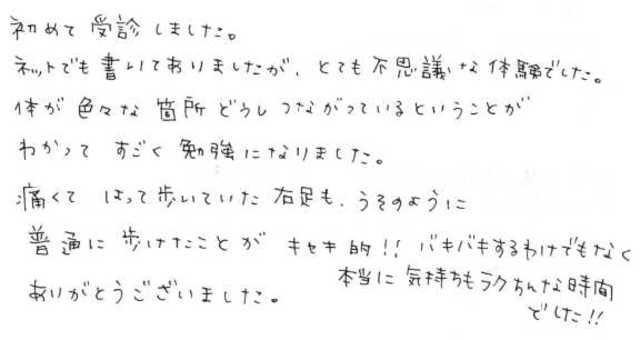 初めて受診しました。
ネットでも書いてありましたが、とても不思議な体験でした。
体が色々な箇所どうしつながっているということが
わかってすごく勉強になりました。
痛くてはって歩いていた右足も、うそのように
普通に歩けたことがキセキ的!! バキバキするわけでもなく
本当に気持ちもラクちんな時間
でした!!
ありがとうございました。